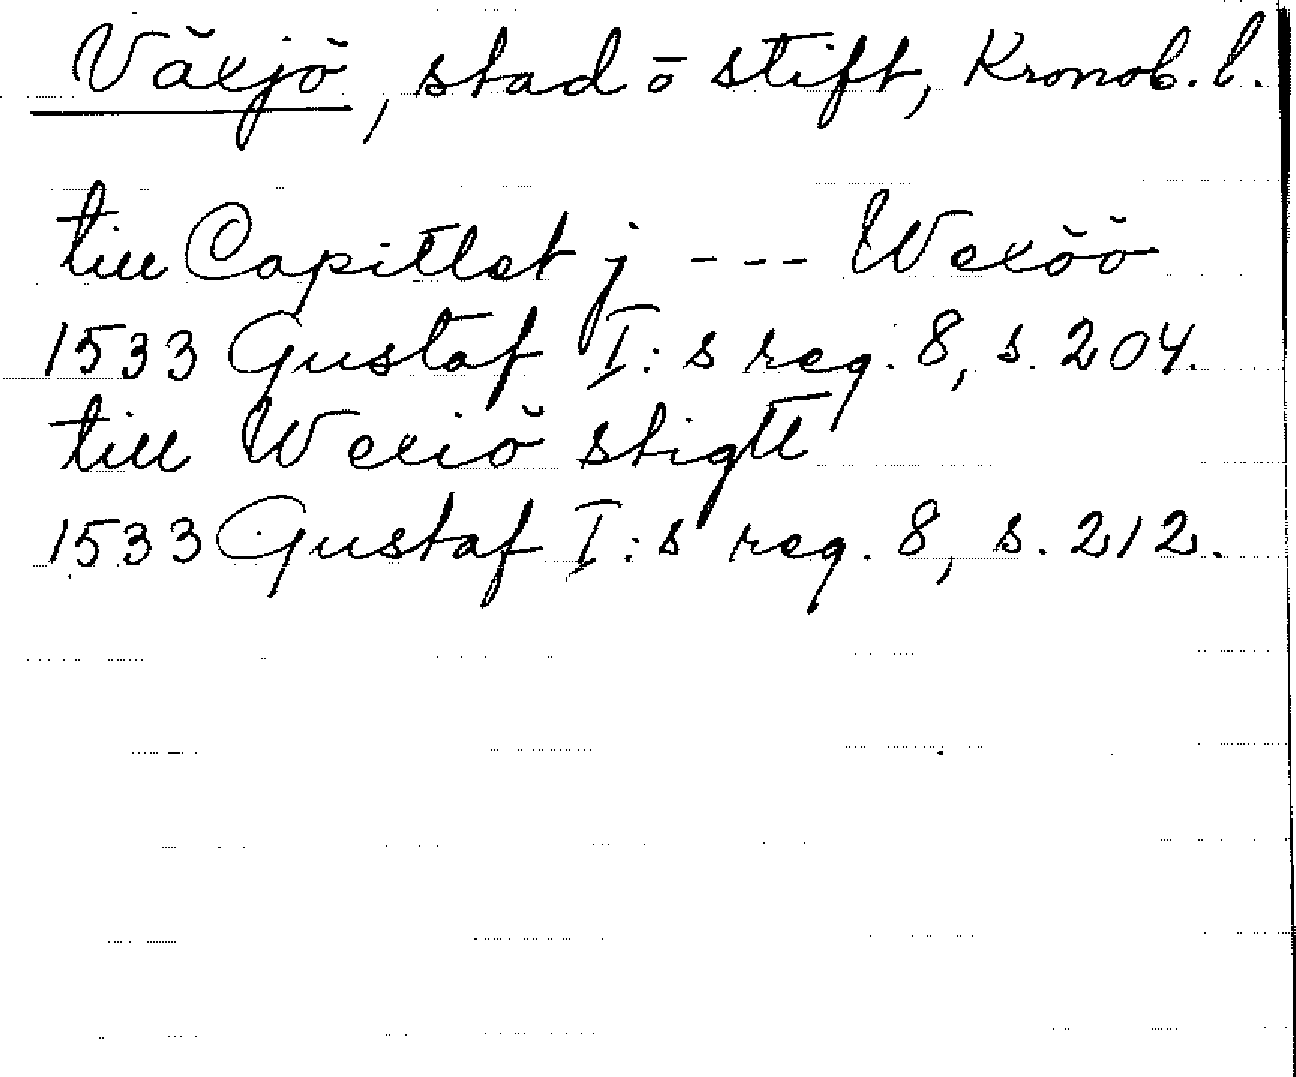 Växjö, stad o stift, Kronob. l.
till Capittlet j --- Wexöö
1533 Gustaf I:s reg. 8, s. 204.
till Wexiö stigtt
1533 Gustaf I:s reg. 8, s. 212.